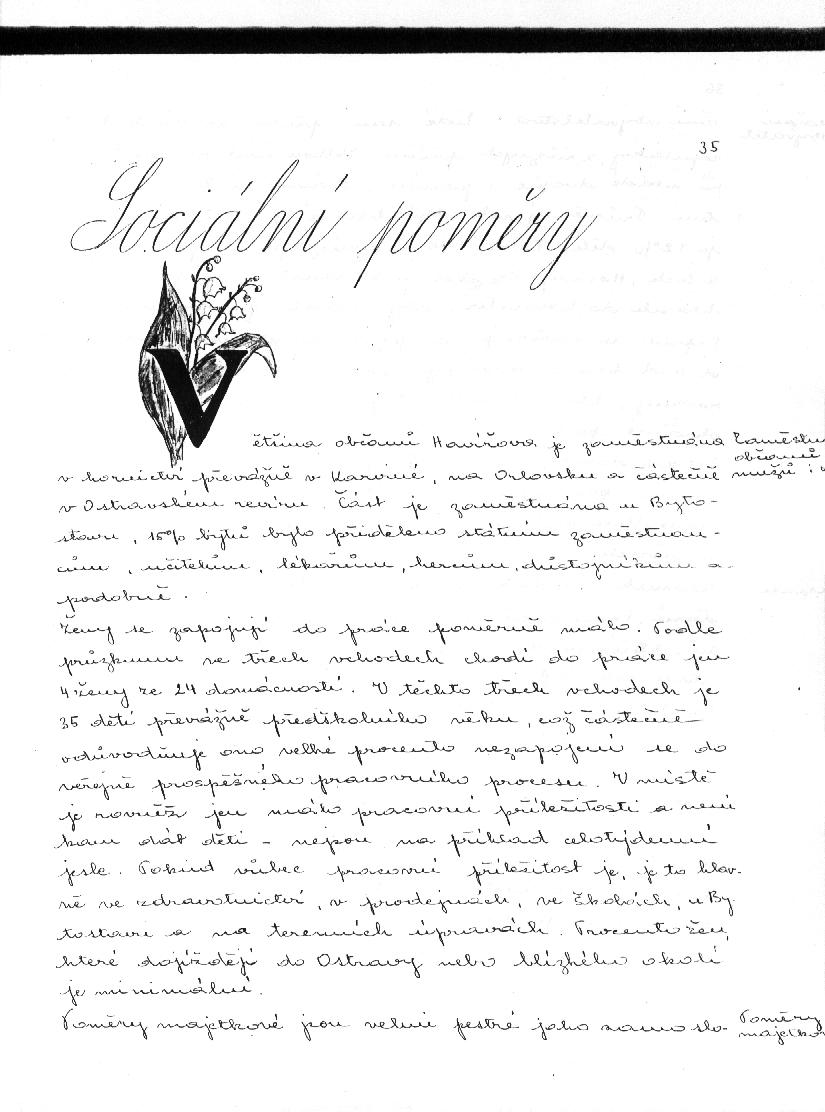 35
Sociální poměry
Většina občanů Havířova je zaměstnána
občanů
v hornictví převážně v Karviné, na Orlovsku a částečně
mužů i
v Ostravském revíru. Část je zaměstnána u Byto-
stavu, 15% bytů bylo přiděleno státním zaměstnan-
cům, učitelům, lékařům, hercům, důstojníkům a
podobně.
Ženy se zapojují do práce poměrně málo. Podle
průzkumu ve třech vchodech chodí do práce jen
4 ženy ze 24 domácností. V těchto třech vchodech je
35 dětí převážně předškolního věku, což částečně
odůvodňuje ono velké procento nezapojení se do
veřejně prospěšného pracovního procesu. V místě
je rovněž jen málo pracovní příležitosti a není
kam dát děti – nejsou na příklad celotýdenní
jesle. Pokud vůbec pracovní příležitost je, je to hlav-
ně ve zdravotnictví, v prodejnách, ve školách, u By-
tostavu a na terenních úpravách. Procento žen,
které dojíždějí do Ostravy nebo blízkého okolí
je minimální.
Poměry majetkové jsou velmi pestré jako samo slo-
Poměry